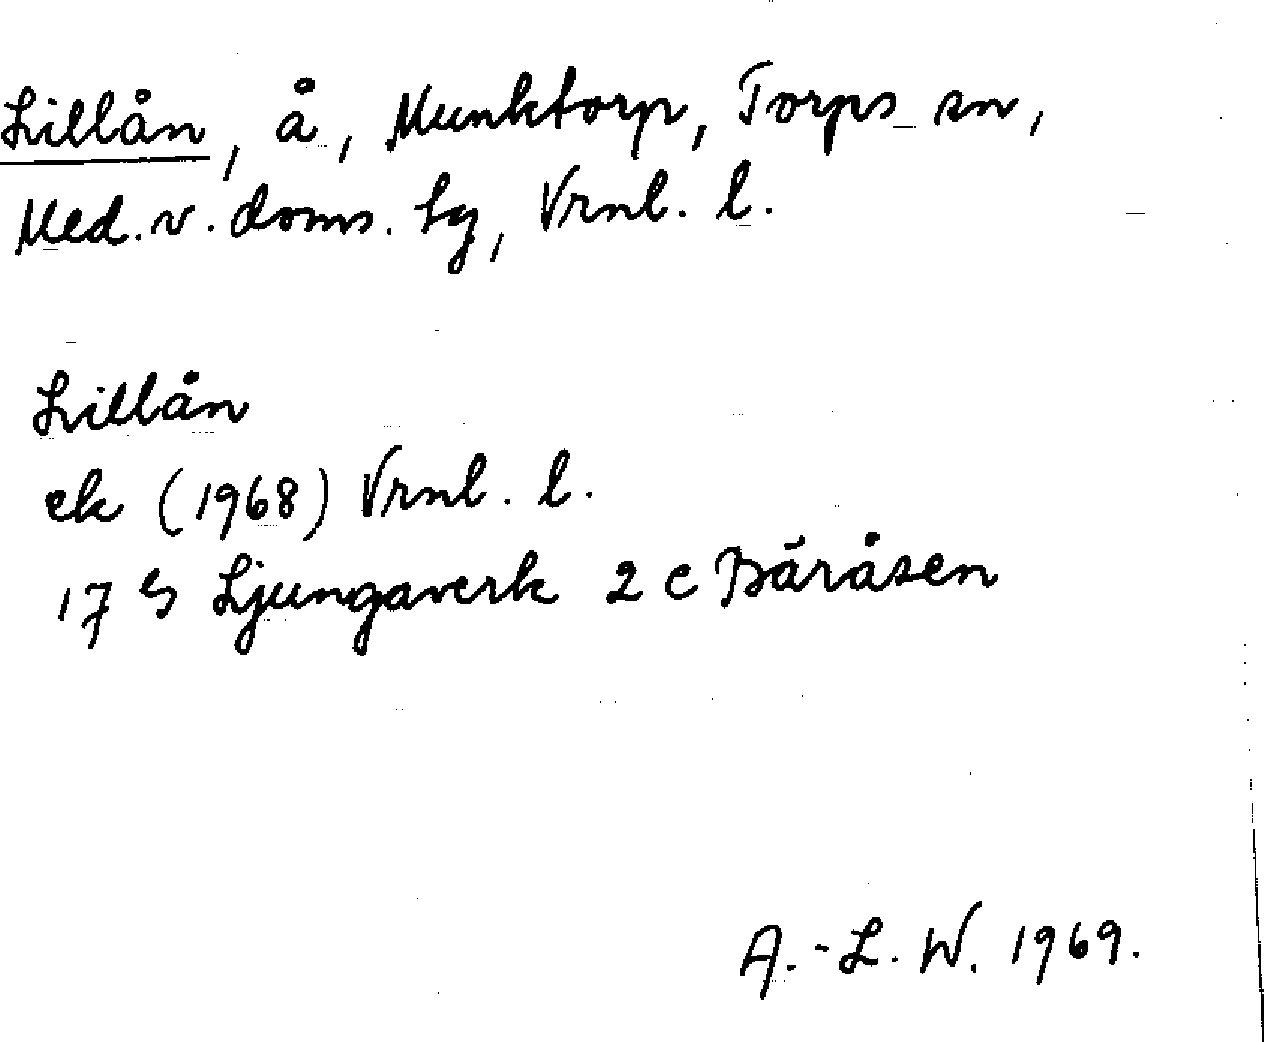 Lillån, å, Munktorp, Torps sn,
Med. v. doms. tg, Vrnl. l.
Lillån
ek (1968) Vrnl. l.
17 G Ljungaverk 2 c Båråsen
A.-L. W. 1969.